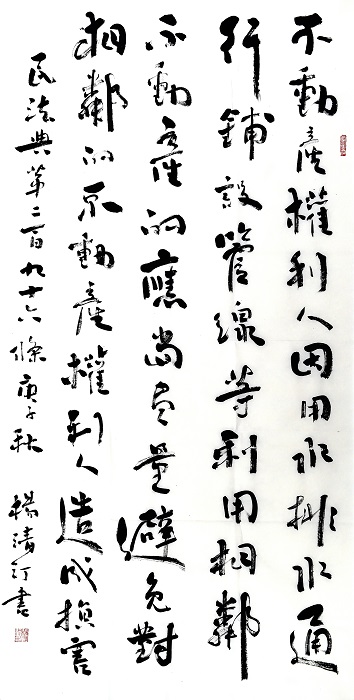 不動産權利人因用水排水通
行鋪設管線等利用相鄰
不動産的應當盡量避免對
相鄰的不動産權利人造成損害
民法典第二百九十六條庚子秋 楊清汀書